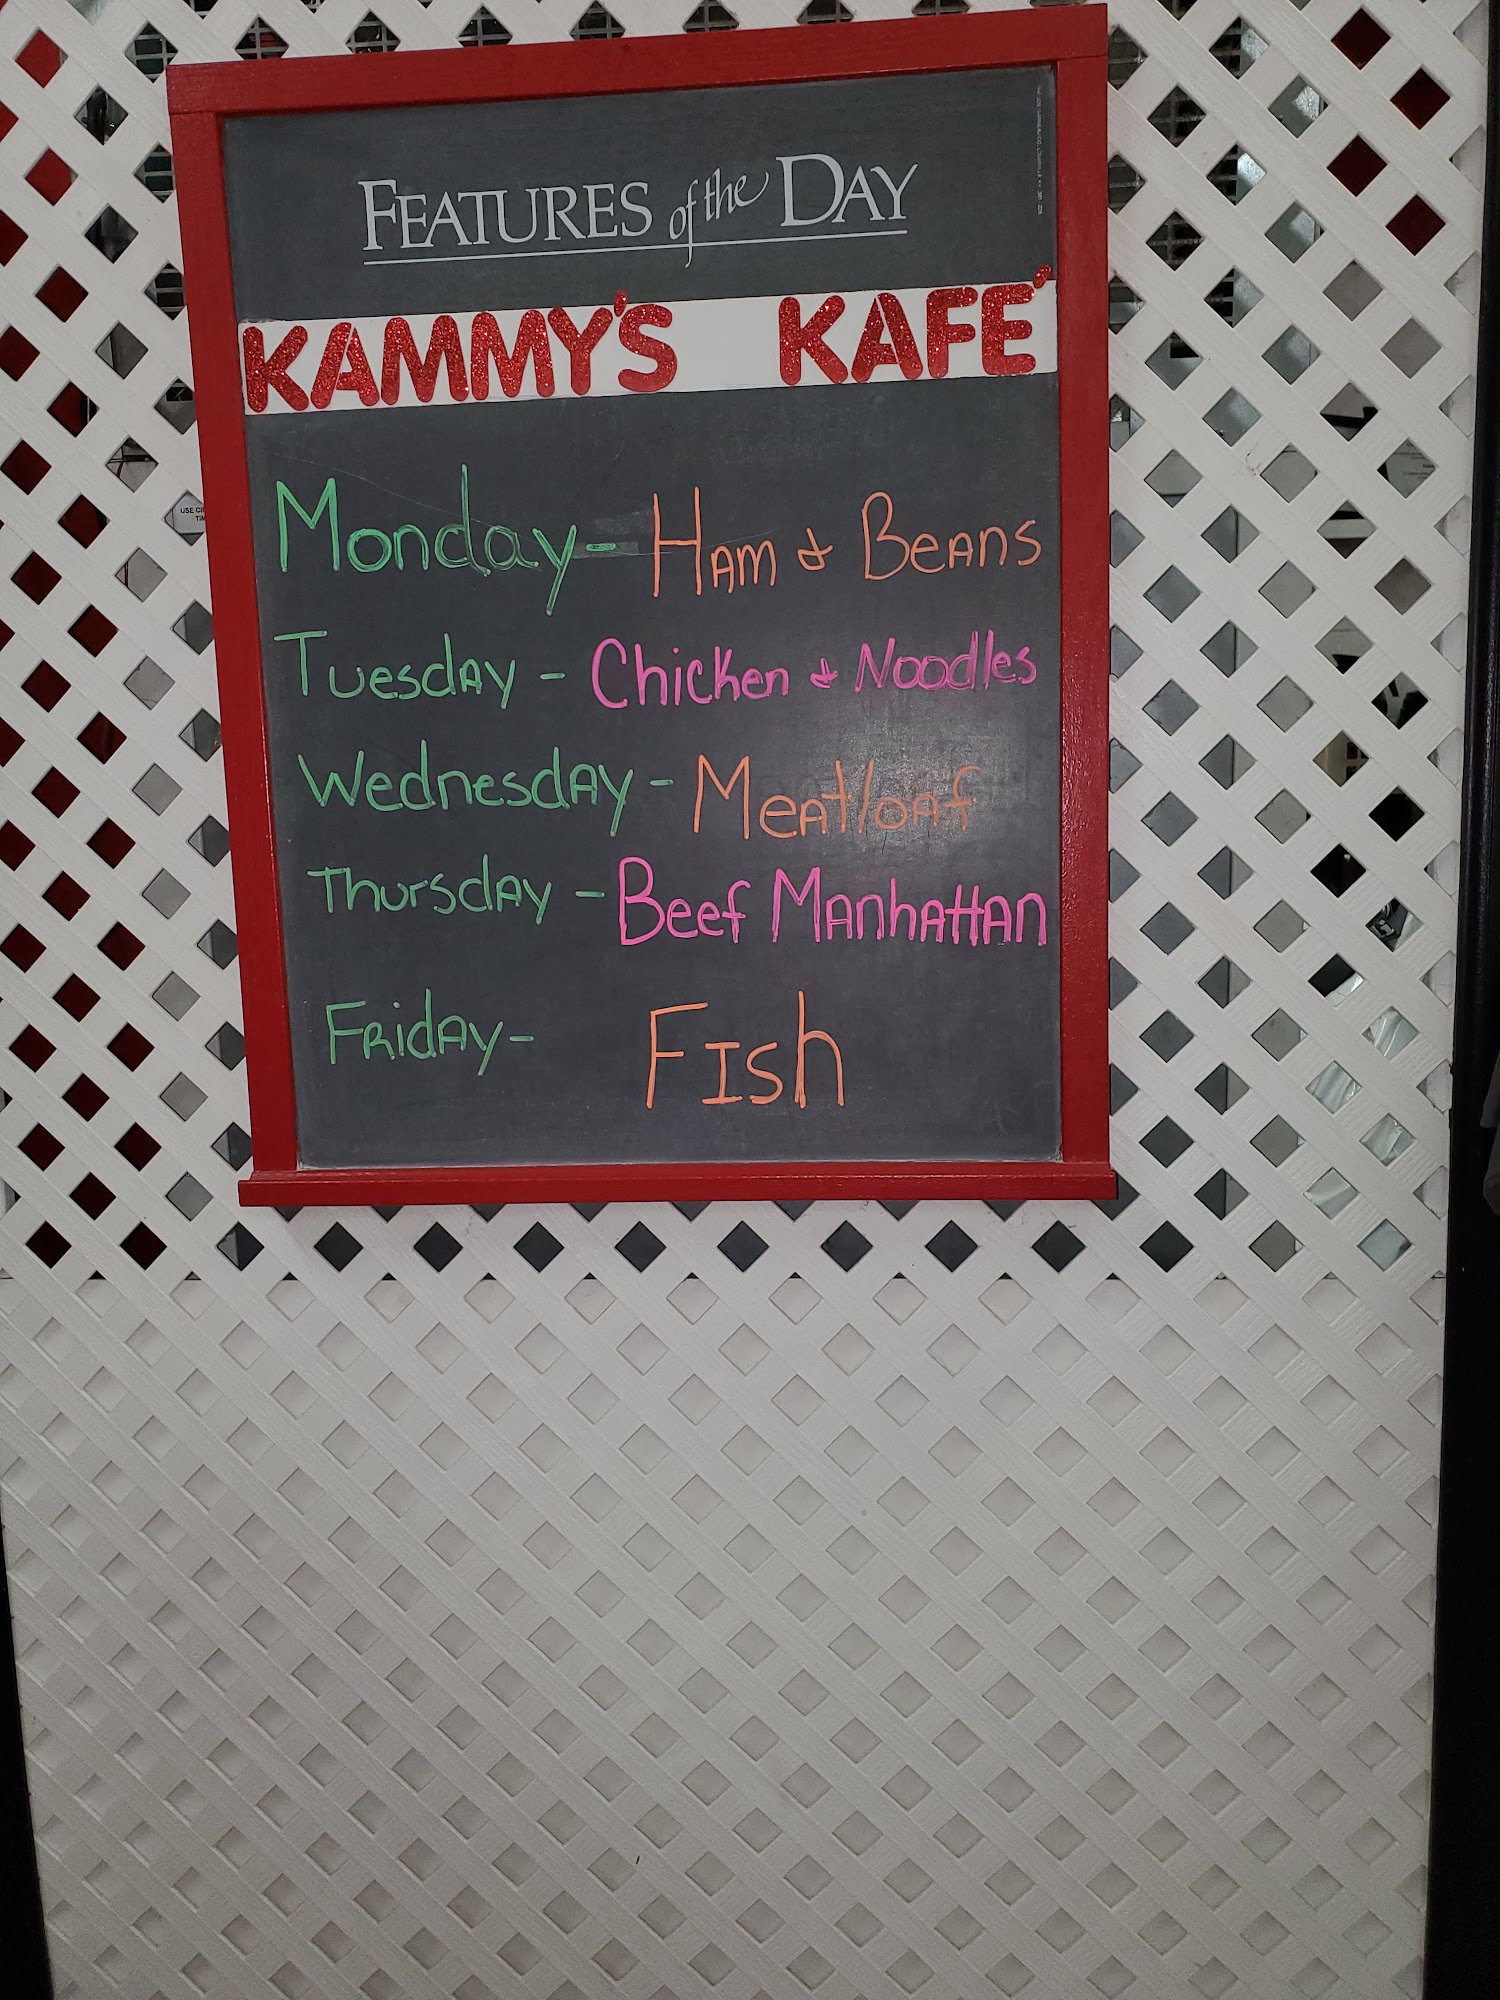 FEATURES of the DAY
KAMMY'S KAFE'
Monday - Ham & Beans
Tuesday - Chicken & Noodles
Wednesday - Meatloaf
Thursday - Beef Manhattan
Friday - Fish
USE